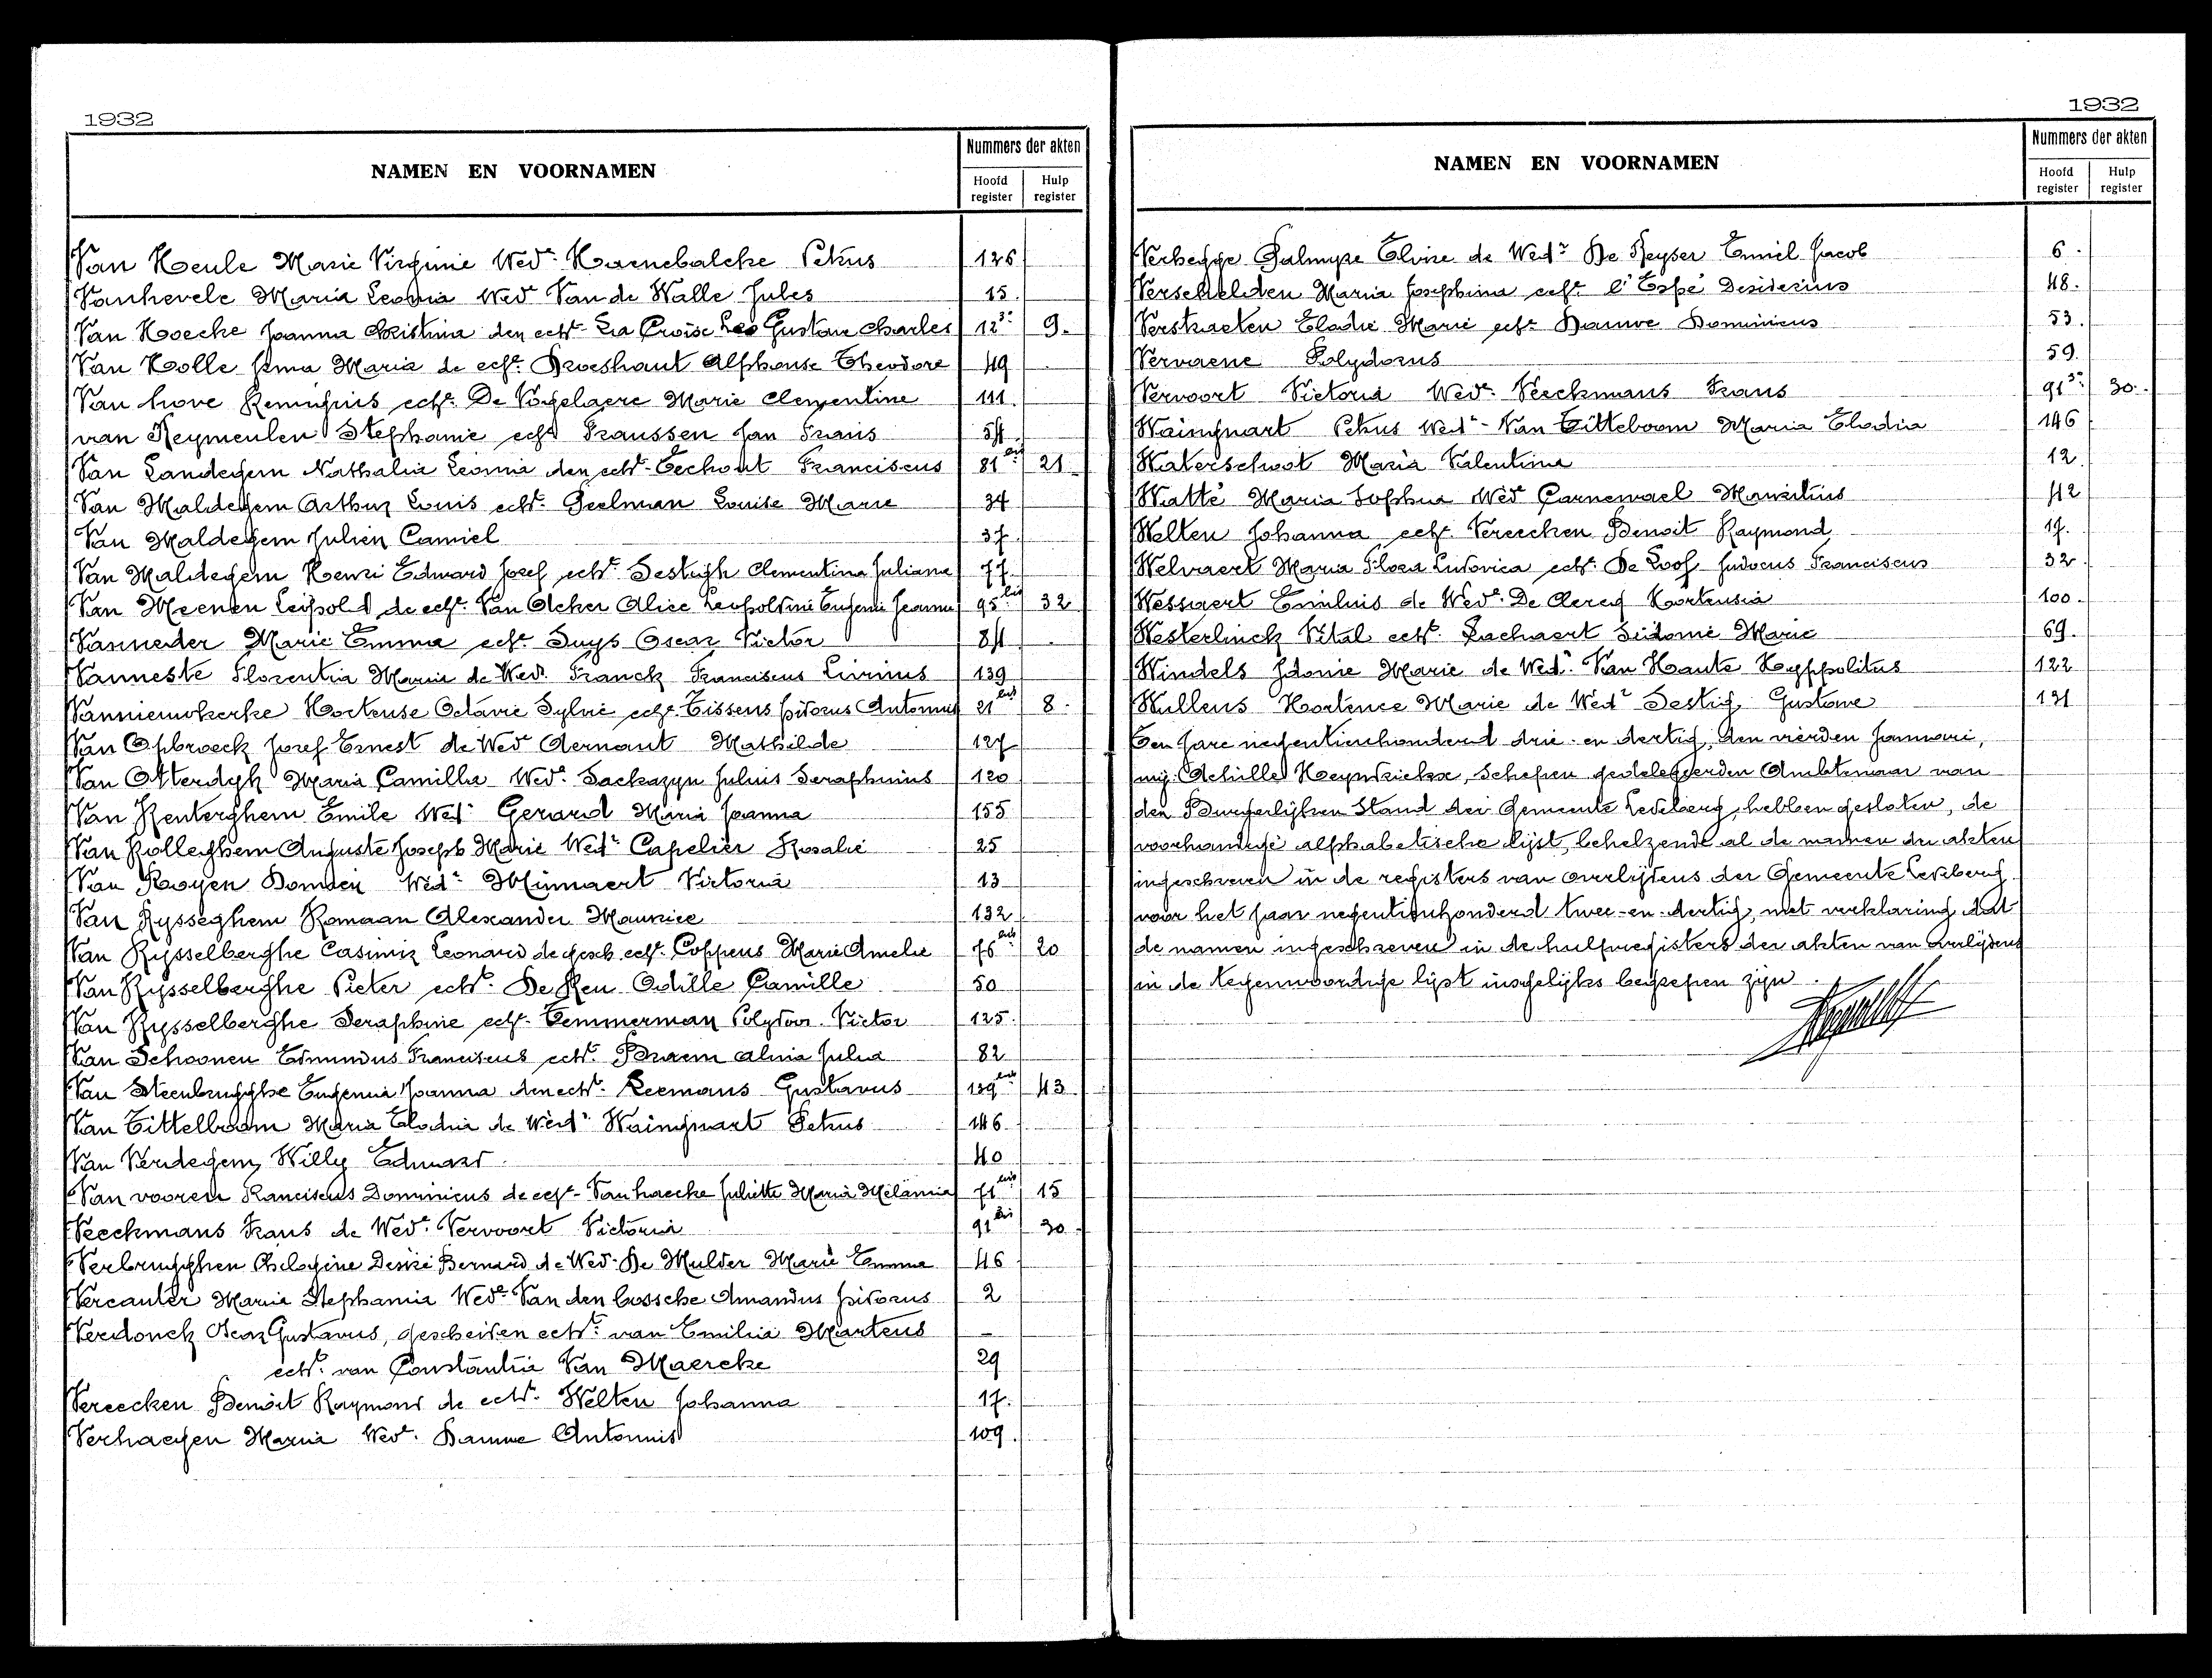 1932
NAMEN EN VOORNAMEN
Nummers der akten
Hoofd register
Hulp register
Van Heule Marie Virginie Wedr. Haenebalcke Petrus 126
Vanhevele Maria Leonia Wed Van de Walle Jules 15
Van Hoecke Joanna Christina den echt. La Croise Leo Gustave Charles 12 9.
Van Holle Irma Maria de echt. Droeshaut Alphonse Theodore 49
Van hove Remigius echt. De Vogelaere Marie Clementine 111.
van Keymeulen Stephanie echt Franssen Jan Frans 54
Van Landegem Nathalia Leonia den echt. Eechout Franciscus 81 bis 21
Van Maldegem Arthur Louis echt. Geelman Louise Marie 34
Van Maldegem Julien Camiel 37
Van Maldegem Henri Edward Jozef echt. Clementina Juliana 77
Van Meenen Leopold de echt. Van Acker Alice Leopoldine Eugenie Jeanne 95 bis 32
Vanneder Marie Emma echt. Suys Oscar Victor 84
Vanneste Florentia Maria de Wed. Franck Franciscus Livinus 139
Vannieuwkerke Hortense Octavie Sylvie echt. Tissens Isidorus Antonius 21 bis 8.
Van Opbroeck Jozef Ernest de Wed Aernaut Mathilde 127
Van Otterdyk Maria Camilla Wed. Julius Seraphinus 120
Van Renterghem Emile Wed. Gerard Maria Joanna 155
Van Rolleghem Auguste Joseph Marie Wedr Capelier Rosalie 25
Van Royen Wedr Minnaert Victoria 13
Van Rysseghem Romaan Alexander Maurice 132
Van Rysselberghe Casimir Leonard de gesch. echt. Coppens Marie Amelie 76 bis 20
Van Rysselberghe Pieter echt. Odille Camille 50
Van Rysselberghe Seraphine echt. Temmerman Polydoor Victor 125.
Van Schoonen Edmundus Franciscus echt. Braem Alina Julia 82
Van Steenbrugghe Eugenia Joanna den echt. Leemans Gustavus 139 bis 43
Van Tittelboom Maria Elodia de Wedr Waingnart Petrus 146
Van Verdegem Willy Eduard 40
Van vooren Franciscus Dominicus de echt. Vanhaecke Juliette Maria Melania 71 bis 15
Veeckmans Frans de Wedr. Vervoort Victoria 91 bis 30
Verbrugghen Désiré Bernard de Wed. De Mulder Marie Emma 46
Vercauter Maria Stephania Wedr. Van den bossche Amandus Isidorus 2
Verdonck Oscar Gustavus, gescheiden echt. van Emilia Martens
echt. van Constantia Van Maercke 29
Vereecken Benoit Raymond de echt. Welten Johanna 17.
Verhaegen Maria Wedr. Damme Antonius 109.
1932
NAMEN EN VOORNAMEN
Nummers der akten
Hoofd register
Hulp register
Verhegge Palmyre Elvire de Wedr De Keyser Emiel Jacob 6.
Verschelden Maria Josephina echt. l'Espé Desiderius 48.
Verstraeten Elodie Marie echt. Dauwe Dominicus 53.
Vervaene Polydorus 59.
Vervoort Victoria Wedr. Veeckmans Frans 91 30.
Waingnart Petrus Wedr. Van Tittelboom Maria Elodia 146
Waterschoot Maria Valentina 12
Watté Maria Sophia Wed Carnewael Mauritius 42
Welten Johanna echt. Vereecken Benoit Raymond 17.
Welvaert Maria Flora Ludovica echt. De Loof Judocus Franciscus 32
Wessaert Emilius de Wedr. De Clercq Hortensia 100.
Westerlinck Vital echt. Lachaert Sidonie Marie 69.
Windels Idonie Marie de Wedr. Van Haute Hyppolitus 122
Wullens Hortence Marie de Wedr Gustave 131
Ten jare negentienhonderd drie-en dertig, den vierden Januari,
wij Achilles Heyndrickx, Schepen gedelegeerden Ambtenaar van
den Burgerlijken Stand der Gemeente Ledeberg, hebben gesloten, de
voorhandige alphabetische lijst, behelzende al de namen der akten
ingeschreven in de registers van overlijdens der Gemeente Ledeberg
voor het jaar negentienhonderd twee-en-dertig, met verklaring dat
de namen ingeschreven in de hulpregisters der akten van Overlijdens
in de tegenwoordige lijst insgelijks begrepen zijn.